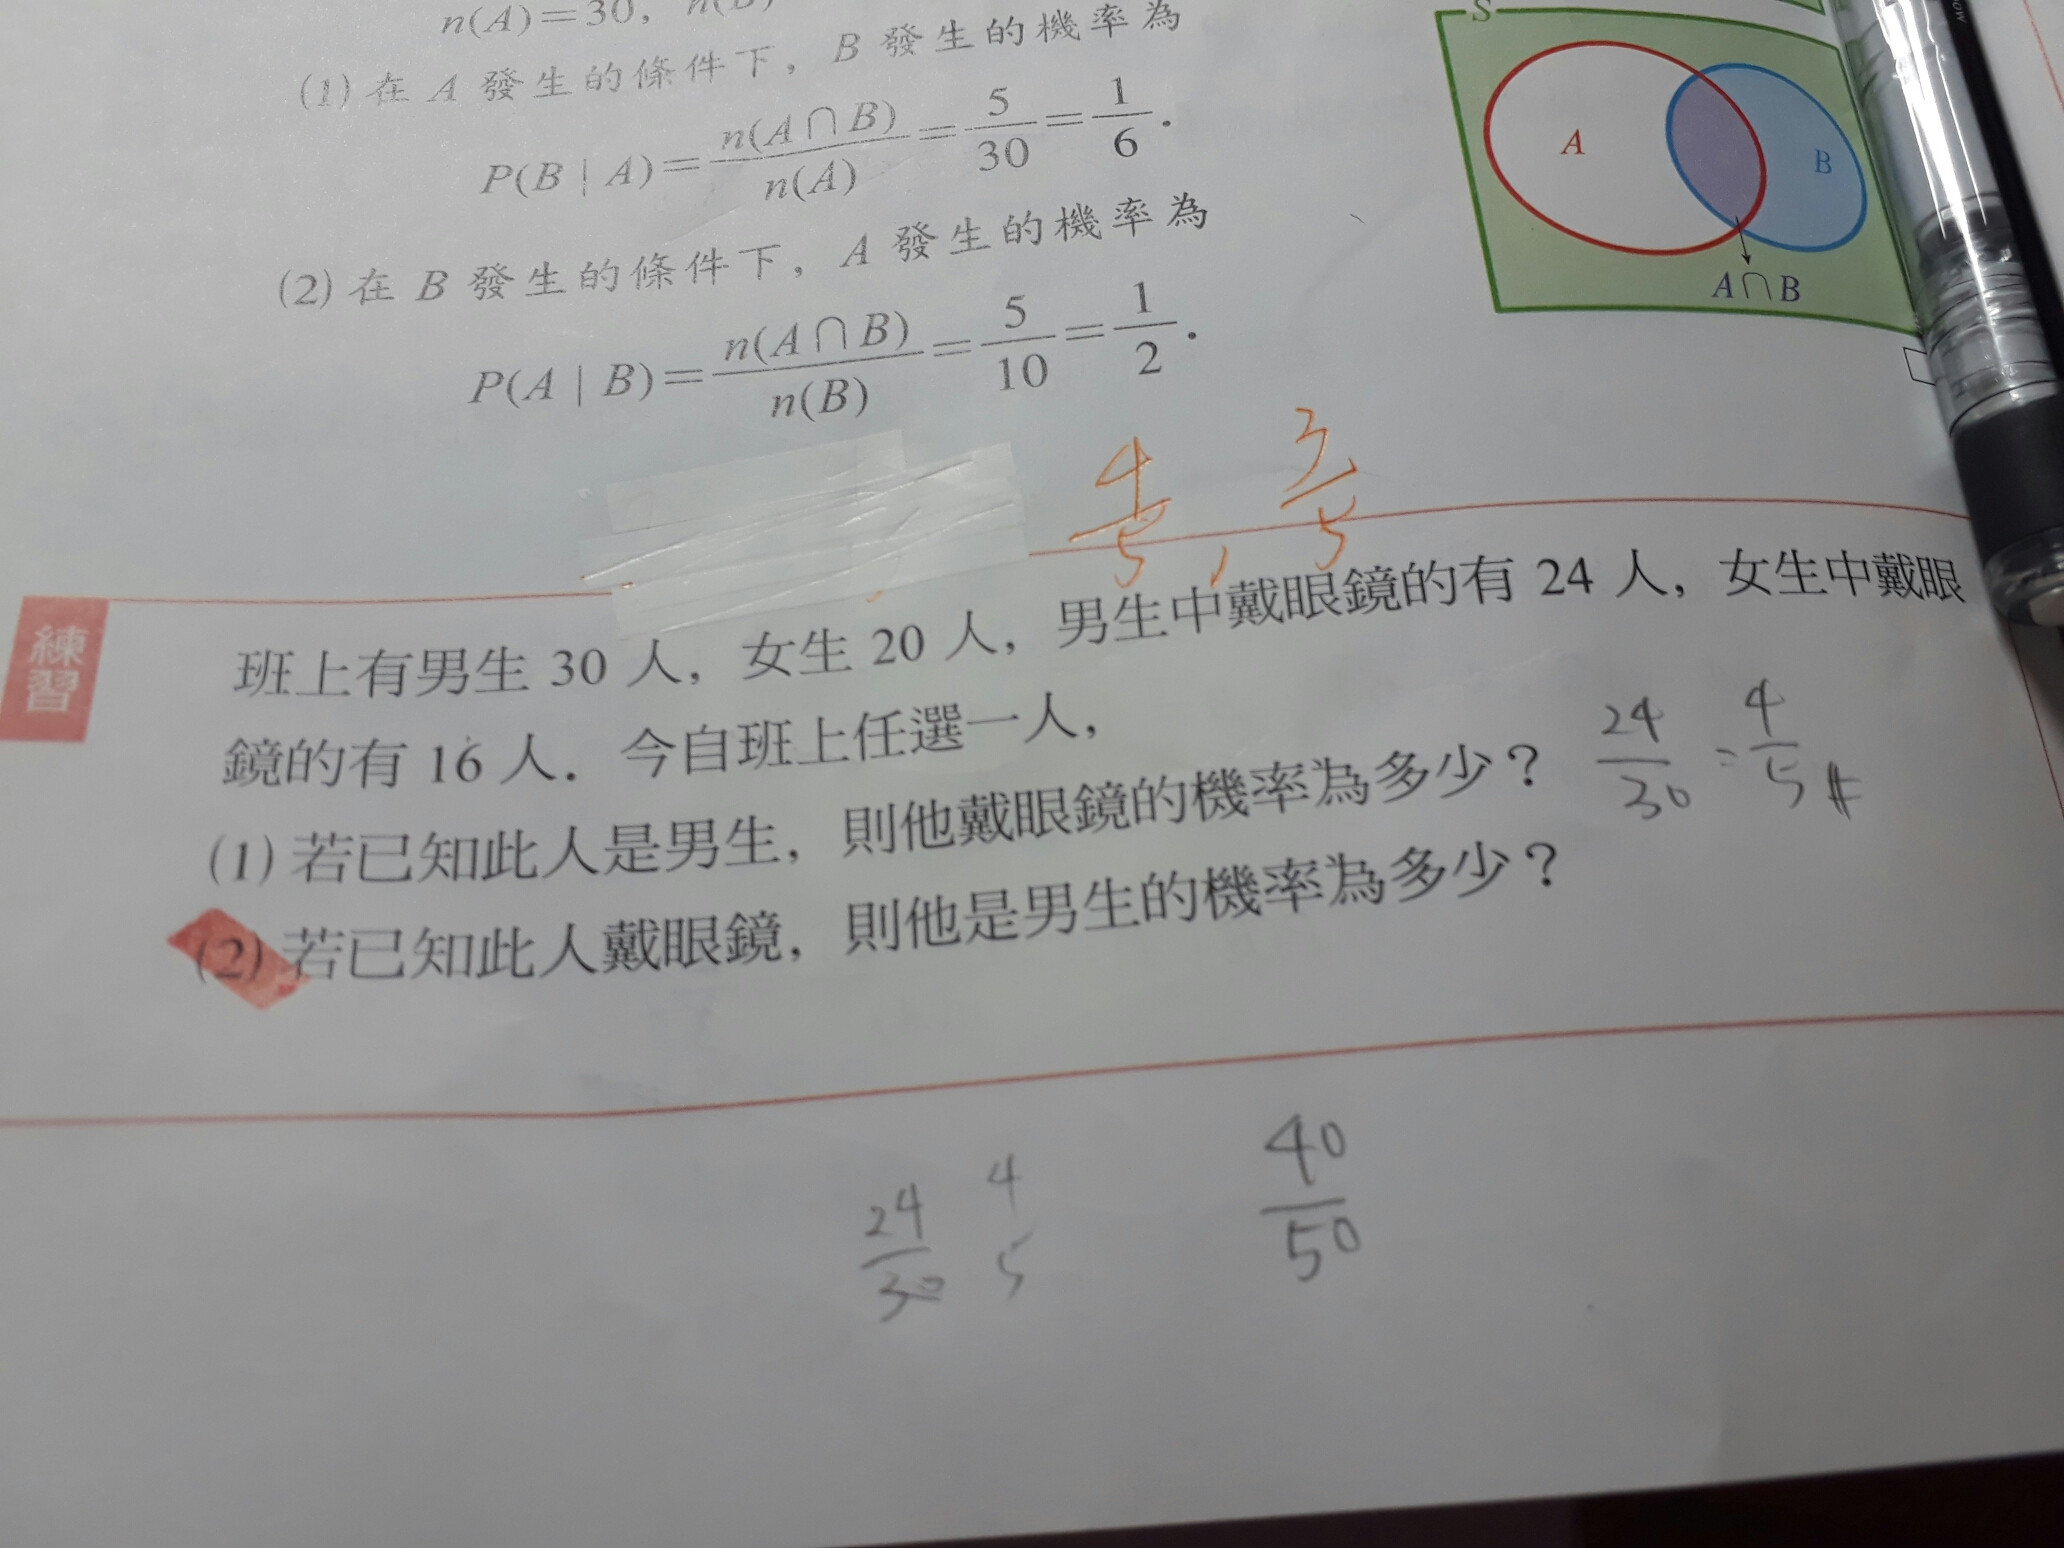 n(A)=30, n(B)
(1) 在 A 發生的條件下, B 發生的機率為
P(B | A)=n(A∩B)/n(A)=5/30=1/6.
(2) 在 B 發生的條件下, A 發生的機率為
P(A | B)=n(A∩B)/n(B)=5/10=1/2.
S
A
B
A∩B
4/5, 3/5
練習
班上有男生 30 人, 女生 20 人, 男生中戴眼鏡的有 24 人, 女生中戴眼
鏡的有 16 人. 今自班上任選一人,
(1) 若已知此人是男生, 則他戴眼鏡的機率為多少? 24/30=4/5#
(2) 若已知此人戴眼鏡, 則他是男生的機率為多少?
24/30 4 5 40/50